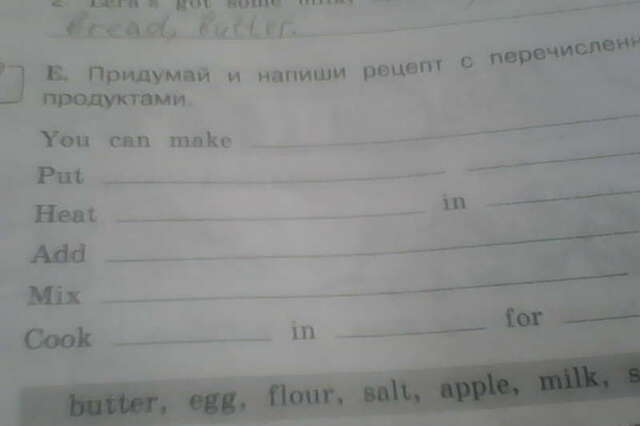 2. Lera's got some milk,
Bread, Butter.
E. Придумай и напиши рецепт с перечислен
продуктами.
You can make
Put
Heat in
Add
Mix
Cook in for
butter, egg, flour, salt, apple, milk, s